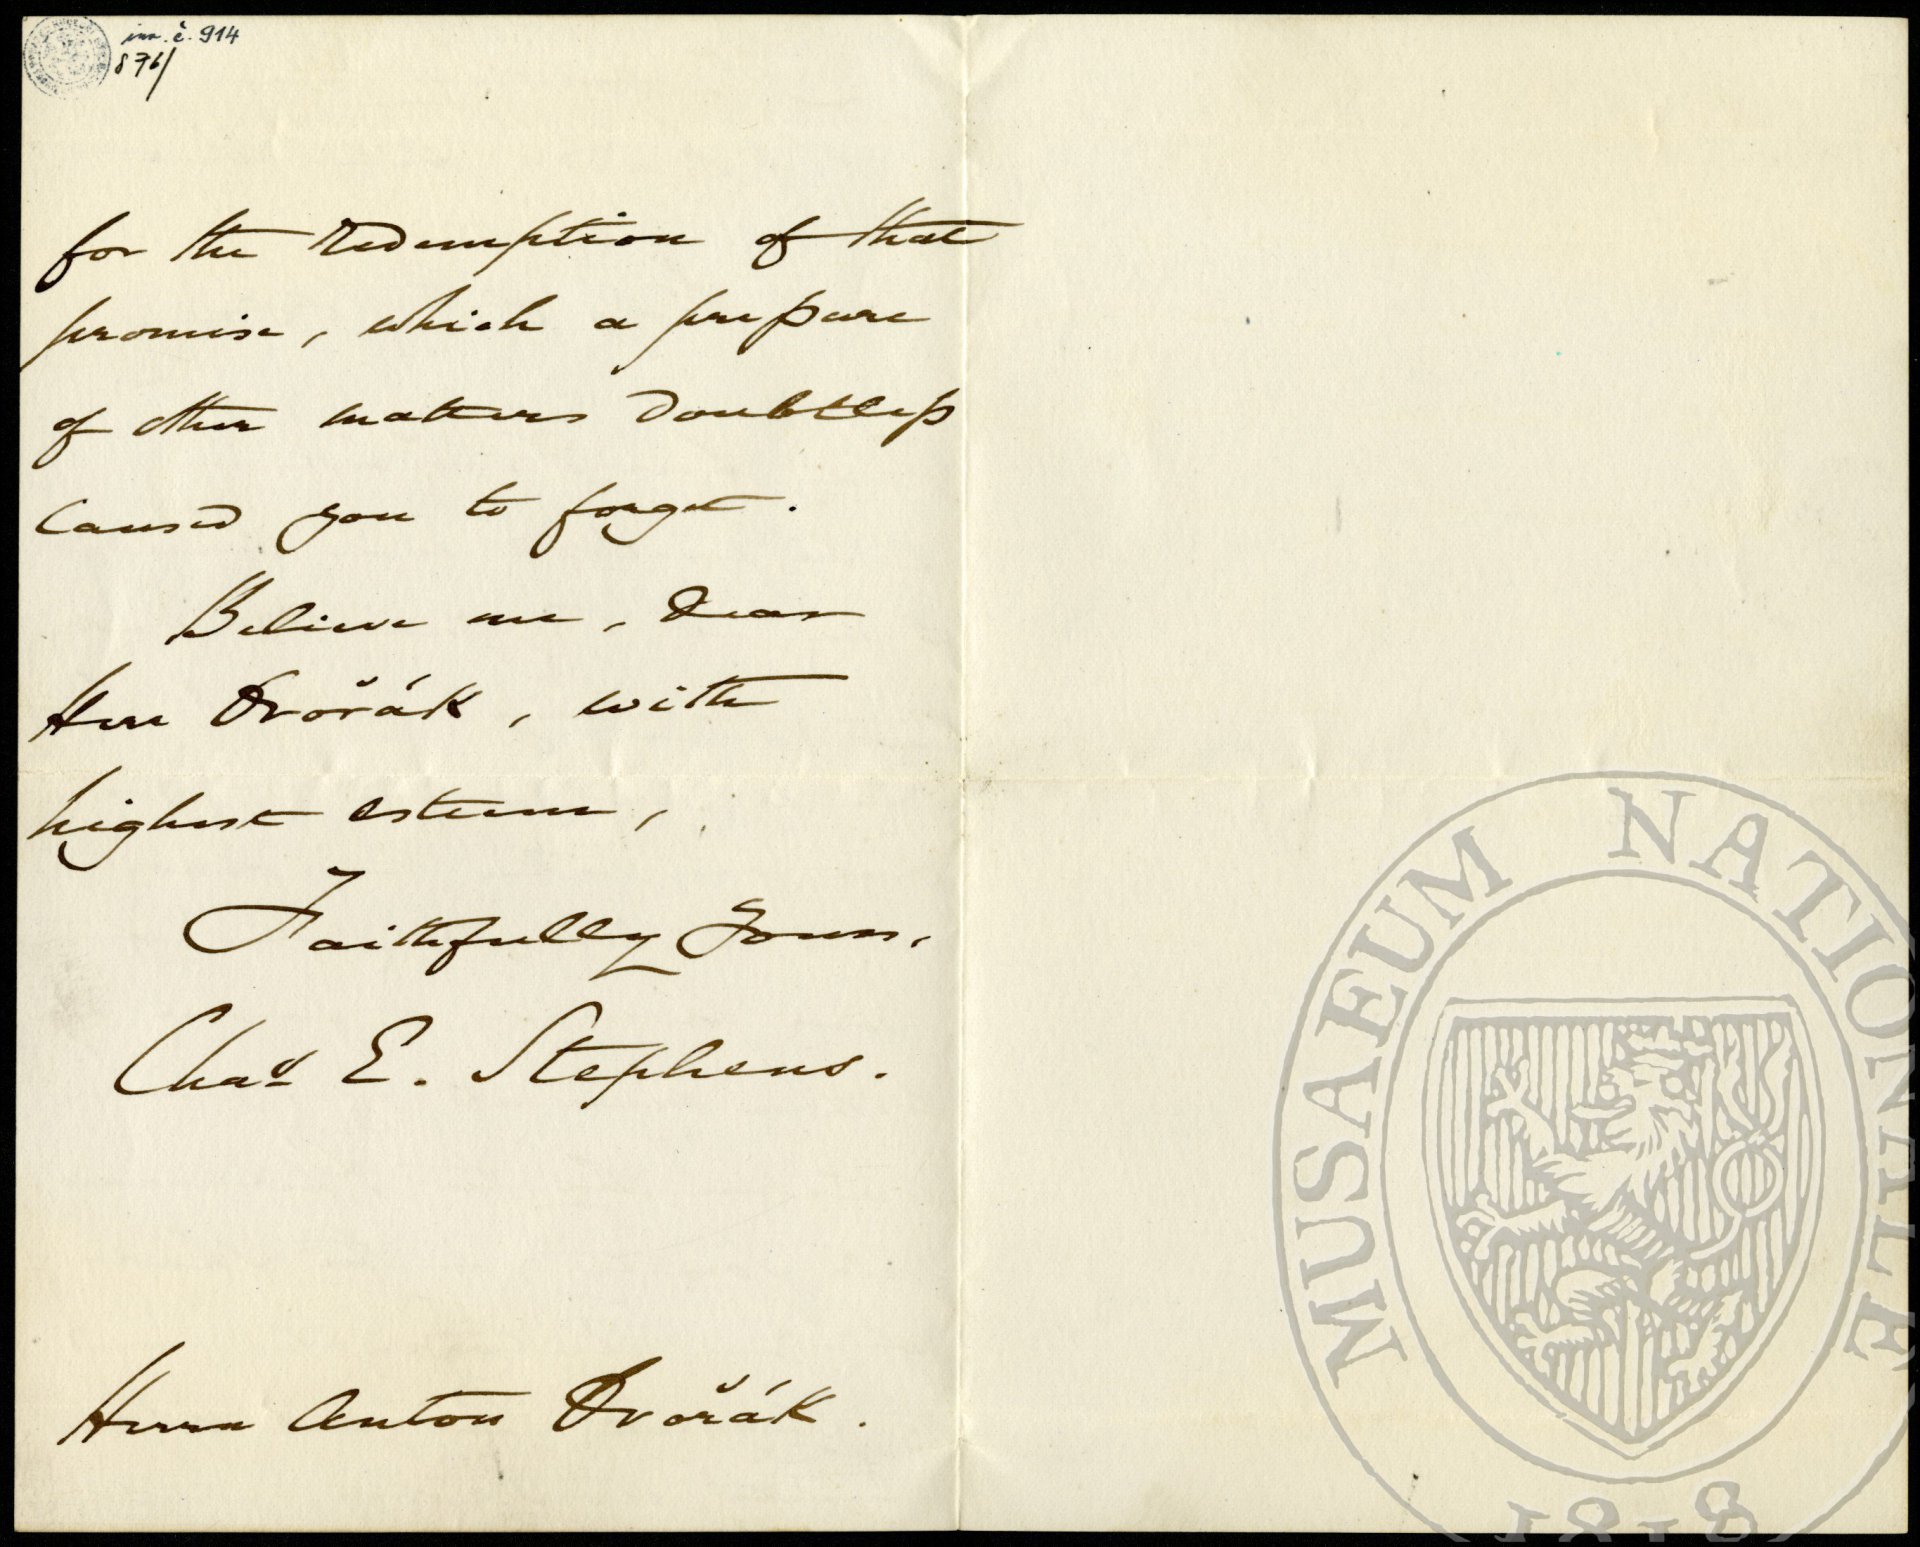 inv. č. 914
876/
for the redemption of that
promise, which a pressure
of other matters doubtless
caused you to forget.
Believe me, dear
Herr Dvořák, with
highest esteem,
Faithfully yours,
Chas E. Stephens.
Herrn Anton Dvořák.
MUSAEUM NATIONALE
1818